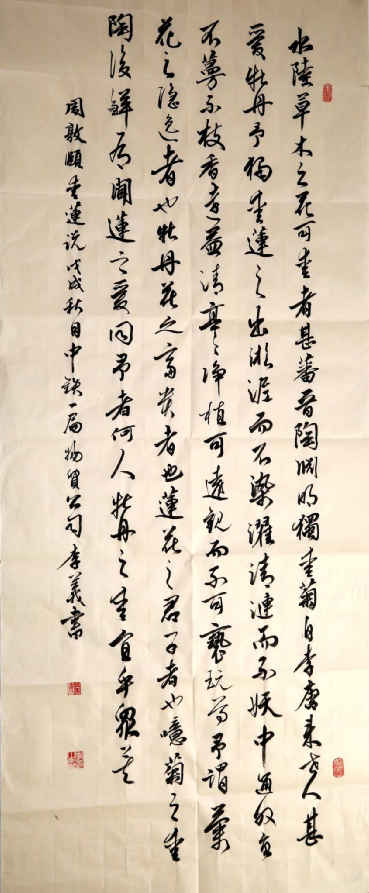 水陸草木之花可愛者甚蕃晉陶渊明獨愛菊自李唐来世人甚
爱牡丹予獨愛蓮之出淤泥而不染濯清漣而不妖中通外直
不蔓不枝香遠益清亭〻净植可遠觀而不可褻玩焉予謂菊
花之隐逸者也牡丹花之富贵者也蓮花之君子者也噫菊之愛
陶後鲜有聞蓮之爱同予者何人牡丹之愛宜乎眾矣
周敦頤愛蓮说戊戌秋月中铁一局物資公司李義書